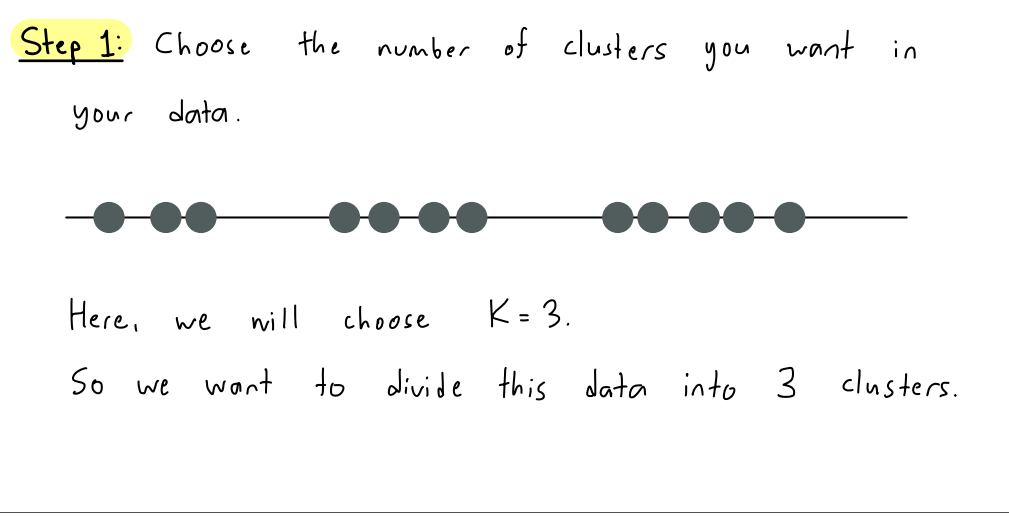 Step 1: Choose the number of clusters you want in
your data.
Here, we will choose K = 3.
So we want to divide this data into 3 clusters.